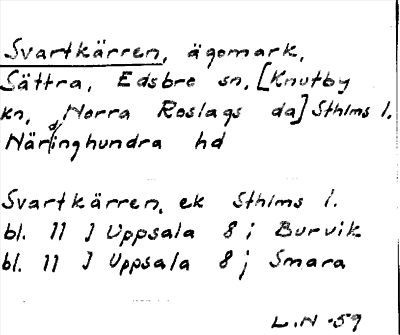 Svartkärren, ägomark,
Sättra, Edsbro sn, [Knutby
kn, Norra Roslags da] Sthlms l.
Närdinghundra hd
Svartkärren, ek Sthlms l.
bl. 11 I Uppsala 8; Burvik
bl. 11 I Uppsala 8; Smara
L.N -59